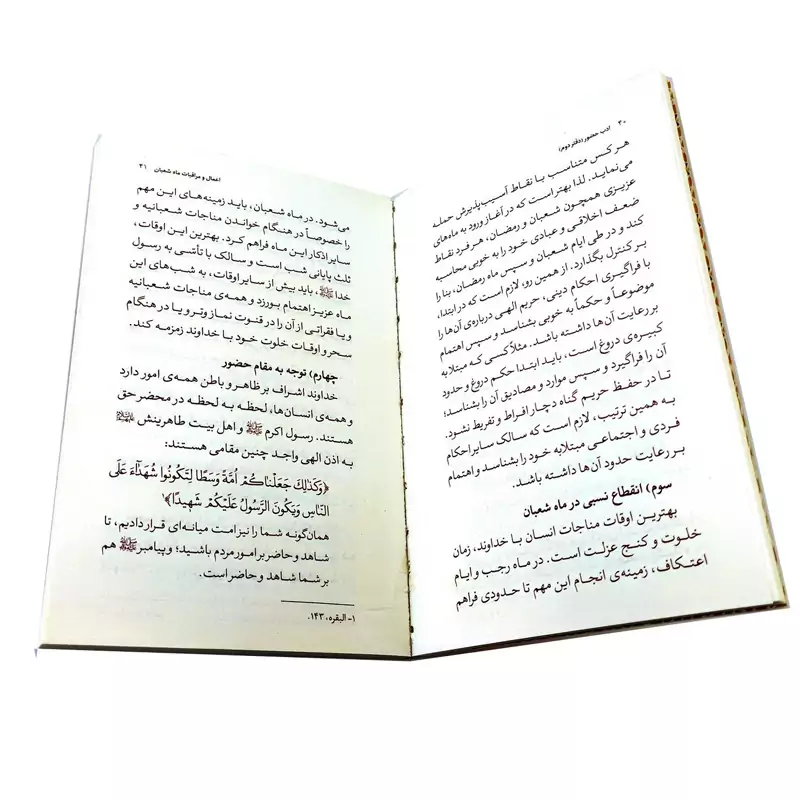 ۳۰ ادب حضور (دفتر دوم)
هر کس متناسب با نقاط آسیب‌پذیرش حمله
می‌نماید. لذا بهتر است که در آغاز ورود به ماه‌های
عزیزی همچون شعبان و رمضان، هر فرد نقاط
ضعف اخلاقی و عبادی خود را به خوبی محاسبه
کند و در طی ایام شعبان و سپس ماه رمضان، بنا را
بر کنترل بگذارد. از همین رو، لازم است که در ابتدا،
با فراگیری احکام دینی، حریم الهی درباره‌ی آن‌ها را
موضوعاً و حکماً به خوبی بشناسد و سپس اهتمام
بر رعایت آن‌ها داشته باشد. مثلاً کسی که مبتلا به
کبیره‌ی دروغ است، باید ابتدا حکم دروغ و حدود
آن را فراگیرد و سپس موارد و مصادیق آن را بشناسد؛
تا در حفظ حریم گناه دچار افراط و تفریط نشود.
به همین ترتیب، لازم است که سالک سایر احکام
فردی و اجتماعی مبتلابه خود را بشناسد و اهتمام
بر رعایت حدود آن‌ها داشته باشد.
سوم) انقطاع نسبی در ماه شعبان
بهترین اوقات مناجات انسان با خداوند، زمان
خلوت و کنج عزلت است. در ماه رجب و ایام
اعتکاف، زمینه‌ی انجام این مهم تا حدودی فراهم
اعمال و مراقبات ماه شعبان ۳۱
می‌شود. در ماه شعبان، باید زمینه‌های این مهم
را خصوصاً در هنگام خواندن مناجات شعبانیه و
سایر اذکار این ماه فراهم کرد. بهترین این اوقات،
ثلث پایانی شب است و سالک با تأسّی به رسول
خدا ﷺ، باید بیش از سایر اوقات، به شب‌های این
ماه عزیز اهتمام بورزد و همه‌ی مناجات شعبانیه
و یا فقراتی از آن را در قنوت نماز وتر و یا در هنگام
سحر و اوقات خلوت خود با خداوند زمزمه کند.
چهارم) توجه به مقام حضور
خداوند اشراف بر ظاهر و باطن همه‌ی امور دارد
و همه‌ی انسان‌ها، لحظه به لحظه در محضر حق
هستند. رسول اکرم ﷺ و اهل بیت طاهرینش
به اذن الهی واجد چنین مقامی هستند:
﴿وَكَذَلِكَ جَعَلْنَاكُمْ أُمَّةً وَسَطًا لِتَكُونُوا شُهَدَاءَ عَلَى
النَّاسِ وَيَكُونَ الرَّسُولُ عَلَيْكُمْ شَهِيدًا﴾۱
همان‌گونه شما را نیز امت میانه‌ای قرار دادیم، تا
شاهد و حاضر بر امور مردم باشید؛ و پیامبر ﷺ هم
بر شما شاهد و حاضر است.
۱- البقره، ۱۴۳.